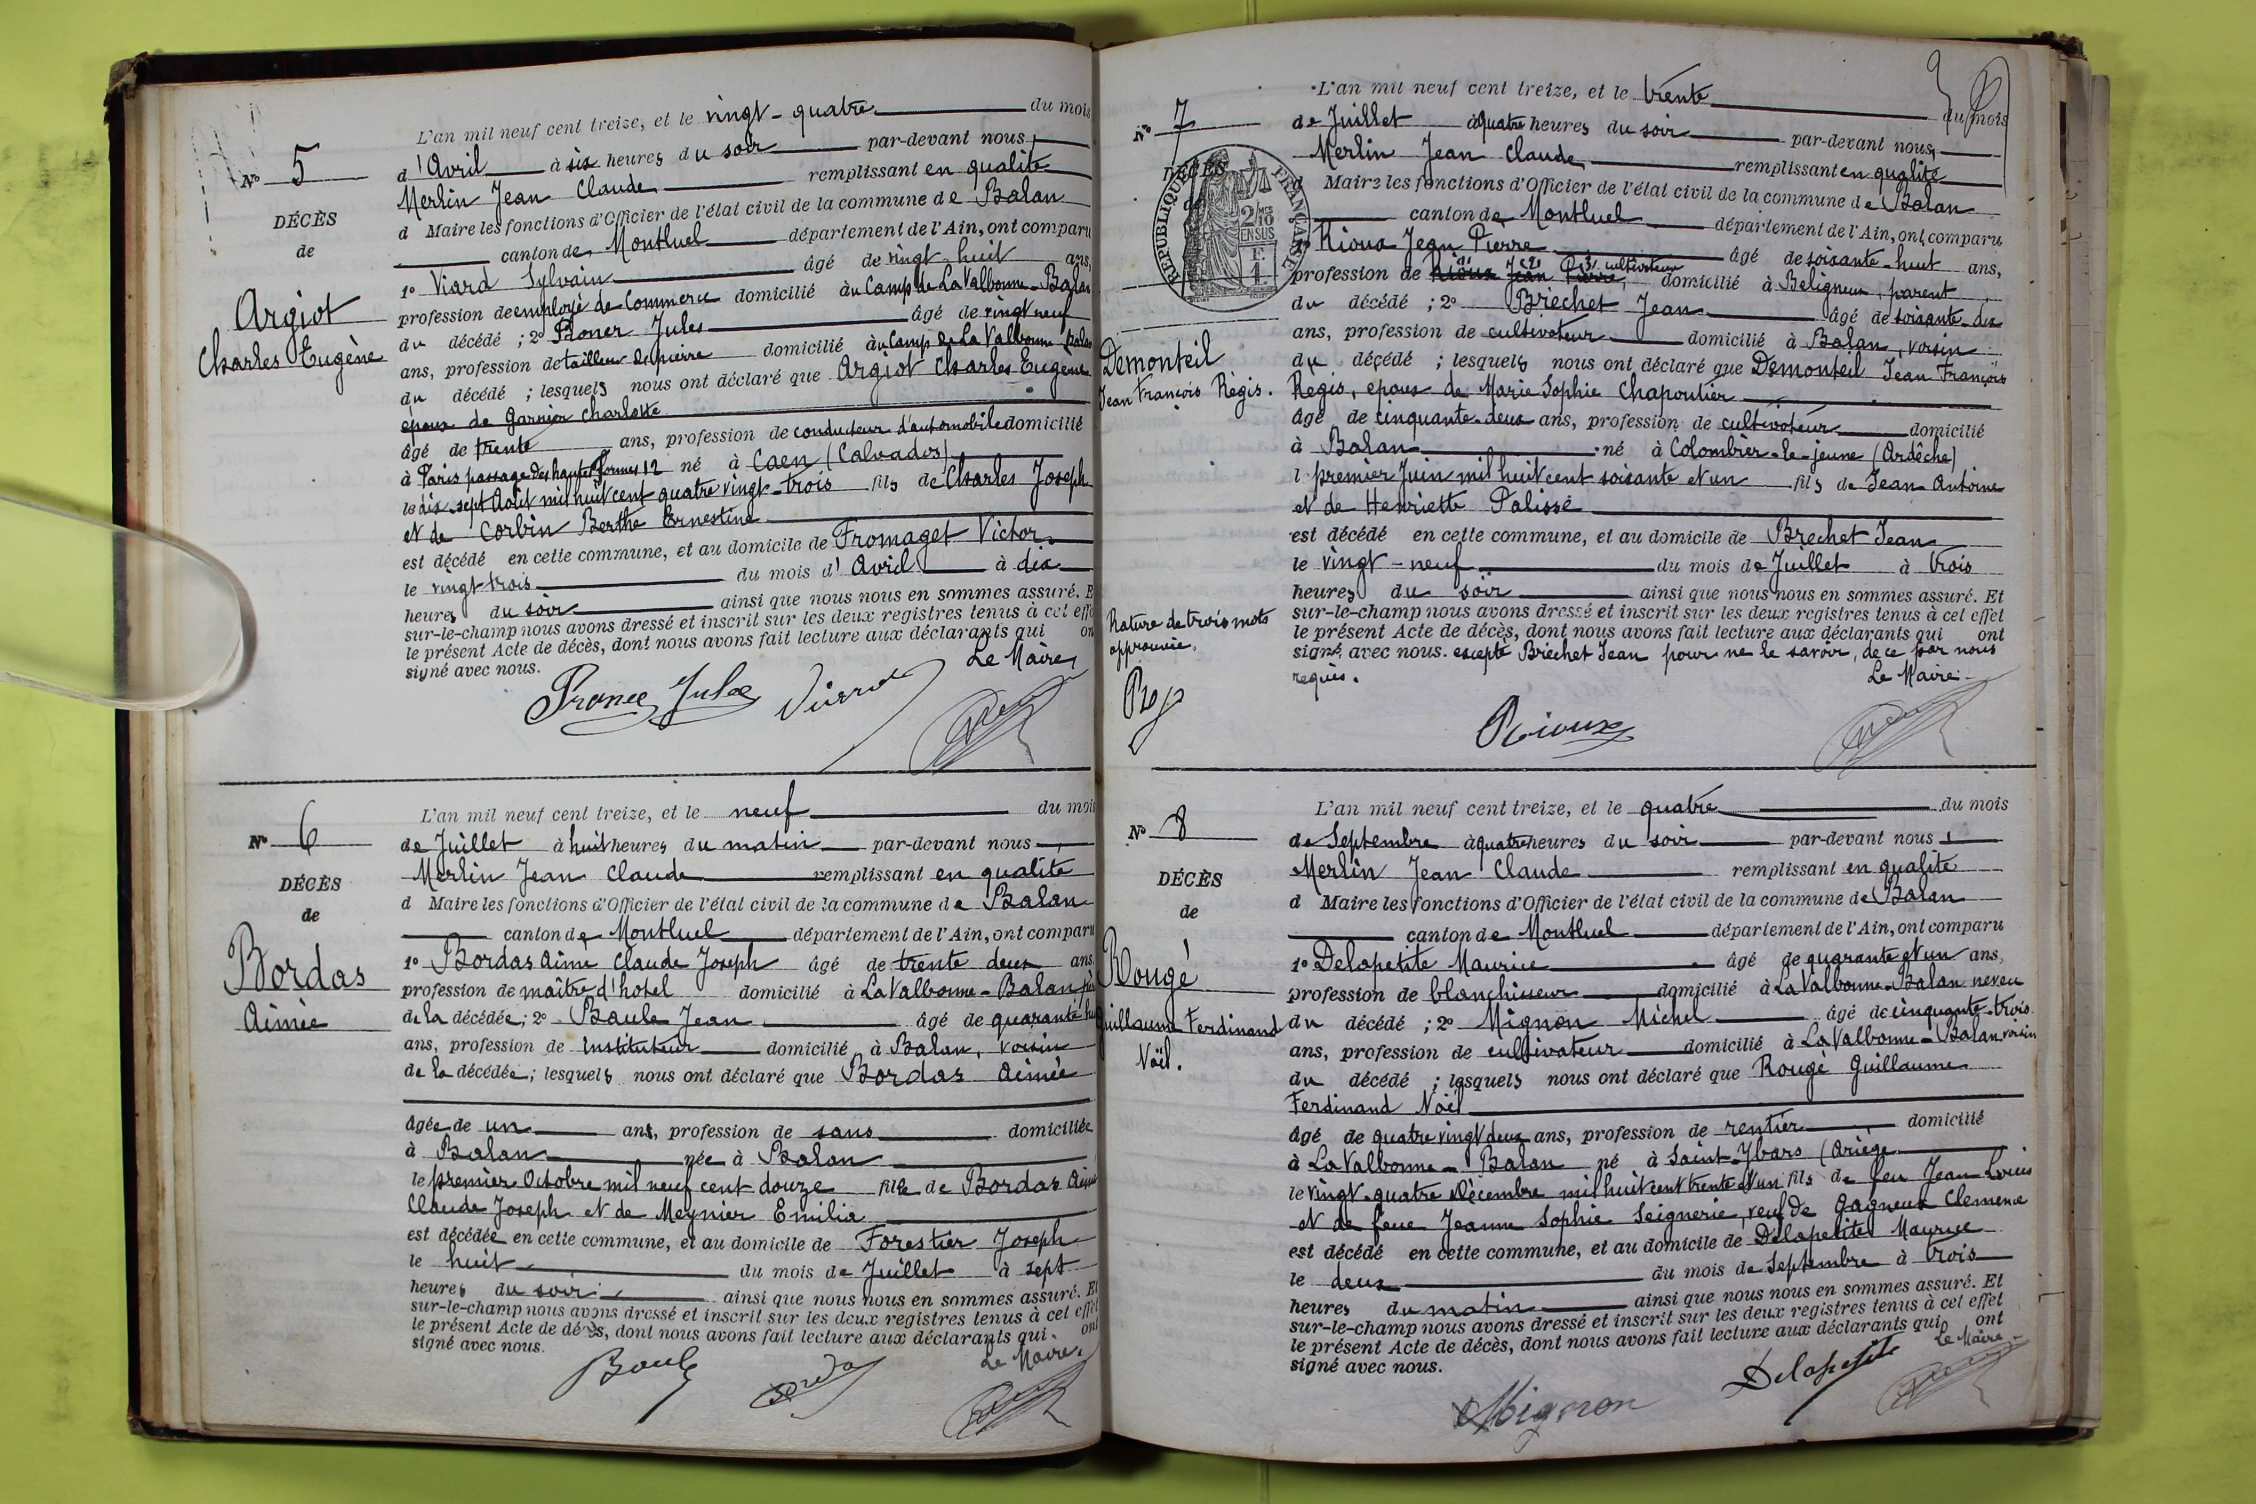 N° 5
DÉCÈS
de
Argiot
Charles Eugène
L'an mil neuf cent treize, et le vingt-quatre du mois
d'Avril à six heures du soir par-devant nous,
Merlin Jean Claude remplissant en qualité
d Maire les fonctions d'Officier de l'état civil de la commune de Balan
canton de Montluel département de l'Ain, ont comparu
1° Viard Sylvain âgé de vingt-huit ans,
profession de employé de Commerce domicilié au Camp de La Valbonne-Balan
du décédé ; 2° Jules âgé de vingt neuf
ans, profession de tailleur de pierre domicilié au Camp de La Valbonne Balan
du décédé ; lesquels nous ont déclaré que Argiot Charles Eugène
époux de Garnier Charlotte
âgé de trente ans, profession de conducteur d'automobile domicilié
à Paris passage des hautes formes 12 né à Caen (Calvados)
le dix-sept Août mil huit cent quatre vingt-trois fils de Charles Joseph
et de Corbin Berthe Ernestine
est décédé en cette commune, et au domicile de Fromaget Victor.
le vingt trois du mois d'Avril à dix
heures du soir ainsi que nous nous en sommes assuré. E
sur-le-champ nous avons dressé et inscrit sur les deux registres tenus à cet effe
le présent Acte de décès, dont nous avons fait lecture aux déclarants qui on
signé avec nous. Le Maire,
Jules Viard
N° 6
DÉCÈS
de
Bordas
Aimée
L'an mil neuf cent treize, et le neuf du mois
de Juillet à huit heures du matin par-devant nous,
Merlin Jean Claude remplissant en qualité
d Maire les fonctions d'Officier de l'état civil de la commune de Balan
canton de Montluel département de l'Ain, ont comparu
1° Bordas Aimé Claude Joseph âgé de trente deux ans
profession de maître d'hotel domicilié à La Valbonne-Balan père
de la décédée ; 2° Baule Jean âgé de quarante huit
ans, profession de Instituteur domicilié à Balan, voisin
de la décédée ; lesquels nous ont déclaré que Bordas Aimée
âgée de un ans, profession de sans domiciliée
à Balan née à Balan
le premier Octobre mil neuf cent douze fille de Bordas Aimé
Claude Joseph et de Meynier Emilia
est décédée en cette commune, et au domicile de Forestier Joseph
le huit du mois de Juillet à sept
heures du soir ainsi que nous nous en sommes assuré. Et
sur-le-champ nous avons dressé et inscrit sur les deux registres tenus à cet effet
le présent Acte de décès, dont nous avons fait lecture aux déclarants qui ont
signé avec nous. Le Maire.
Baule Bordas
N° 7
DÉCÈS
de
RÉPUBLIQUE FRANÇAISE
2/10
EN SUS
F.
1
Demonteil
Jean François Régis.
L'an mil neuf cent treize, et le trente du mois
de Juillet à quatre heures du soir par-devant nous,
Merlin Jean Claude remplissant en qualité
d Maire les fonctions d'Officier de l'état civil de la commune de Balan
canton de Montluel département de l'Ain, ont comparu
1° Rioux Jean Pierre âgé de soixante-huit ans,
profession de Rioux Jean Pierre, cultivateur domicilié à Beligneux, parent
du décédé ; 2° Brechet Jean âgé de soixante-dix
ans, profession de cultivateur domicilié à Balan, voisin
du décédé ; lesquels nous ont déclaré que Demonteil Jean François
Régis, époux de Marie Sophie Chapoutier
âgé de cinquante-deux ans, profession de cultivateur domicilié
à Balan né à Colombier-le-jeune (Ardêche)
l premier Juin mil huit cent soixante et un fils de Jean-Antoine
et de Henriette Palisse
est décédé en cette commune, et au domicile de Brechet Jean
le vingt-neuf du mois de Juillet à trois
heures du soir ainsi que nous nous en sommes assuré. Et
sur-le-champ nous avons dressé et inscrit sur les deux registres tenus à cet effet
le présent Acte de décès, dont nous avons fait lecture aux déclarants qui ont
signé avec nous. excepté Brechet Jean pour ne le savoir, de ce par nous
requis. Le Maire
Rature de trois mots
approuvée.
Rioux
N° 8
DÉCÈS
de
Rougé
Guillaume Ferdinand
Noël.
L'an mil neuf cent treize, et le quatre du mois
de Septembre à quatre heures du soir par-devant nous,
Merlin Jean Claude remplissant en qualité
d Maire les fonctions d'Officier de l'état civil de la commune de Balan
canton de Montluel département de l'Ain, ont comparu
1° Delapetite Maurice âgé de quarante et un ans,
profession de blanchisseur domicilié à La Valbonne-Balan neveu
du décédé ; 2° Mignon Michel âgé de cinquante-trois
ans, profession de cultivateur domicilié à La Valbonne-Balan voisin
du décédé ; lesquels nous ont déclaré que Rougé Guillaume
Ferdinand Noël
âgé de quatre vingt deux ans, profession de rentier domicilié
à La Valbonne-Balan né à Saint-Ybars (Ariège
le vingt-quatre Décembre mil huit cent trente et un fils de feu Jean Louis
et de feue Jeanne Sophie Seignerie, veuf de Gagneux Clemence
est décédé en cette commune, et au domicile de Delapetite Maurice
le deux du mois de Septembre à trois
heures du matin ainsi que nous nous en sommes assuré. Et
sur-le-champ nous avons dressé et inscrit sur les deux registres tenus à cet effet
le présent Acte de décès, dont nous avons fait lecture aux déclarants qui ont
signé avec nous. Le Maire
Mignon Delapetite